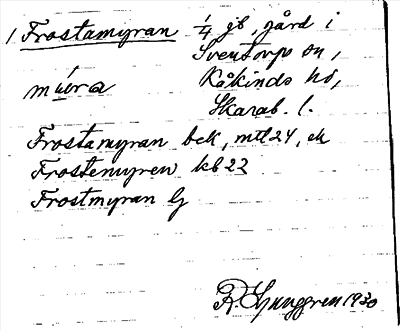 1. Frostamyran 1/4 gb, gård i
Sventorps sn,
Kåkinds hd,
Skarab. l.
Frostamyran bek, mtl 24, ek
Frostemyren kb 22
Frostmyran G
R Ljunggren 1930